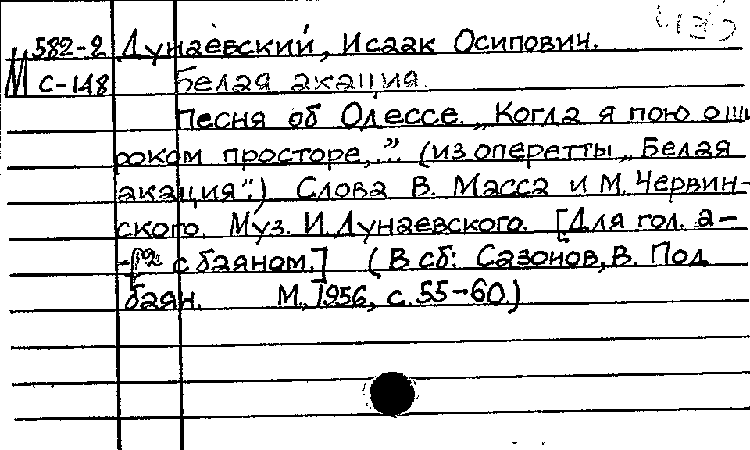 582-2 Дунаевский, Исаак Осипович.
М С-148 Белая акация.
Песня об Одессе. „Когда я пою о ши
роком просторе,..” (из оперетты „Белая
акация“.) Слова В. Масса и М. Червин-
ского. Муз. И. Дунаевского. [Для гол. a-
с баяном.] (В сб: Сазонов, В. Под
баян. М., 1956, с. 55-60.)